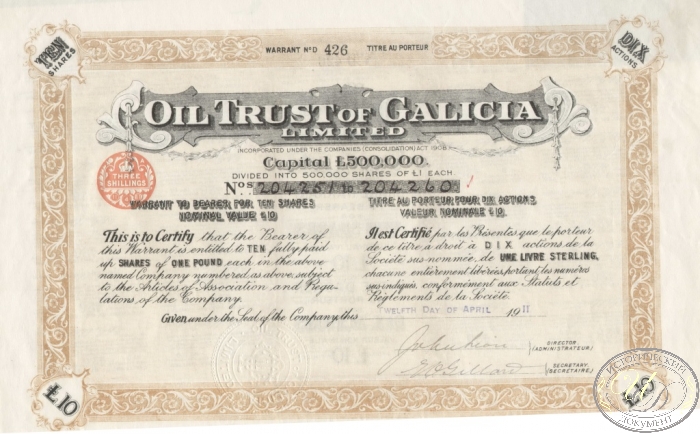 TEN
SHARES
WARRANT NO D 426 TITRE AU PORTEUR
DIX
ACTIONS
OIL TRUST OF GALICIA
LIMITED
INCORPORATED UNDER THE COMPANIES (CONSOLIDATION) ACT 1908
Capital £500,000.
DIVIDED INTO 500,000 SHARES OF £1 EACH
Nos 204251 to 204260
THREE
SHILLINGS
WARRANT TO BEARER FOR TEN SHARES
NOMINAL VALUE £10.
This is to Certify that the Bearer of
this Warrant is entitled to TEN fully paid
up SHARES of ONE POUND each in the above
named Company numbered as above, subject
to the Articles of Association and Regu-
lations, of the Company.
TITRE AU PORTEUR POUR DIX ACTIONS
VALEUR NOMINALE £10.
Il est Certifié par les Présentes que le porteur
de ce titre a droit à DIX actions de la
Société sus nommée, de UNE LIVRE STERLING,
chacune entièrement libérées portant les numéros
sus indiqués, conformément aux Statuts et
Règlements de la Société.
Given under the Seal of the Company, this TWELFTH DAY OF APRIL 1911
DIRECTOR
(ADMINISTRATEUR)
SECRETARY
(SECRÉTAIRE)
£10
£10
ИСТОРИЧЕСКИЙ
ДОКУМЕНТ